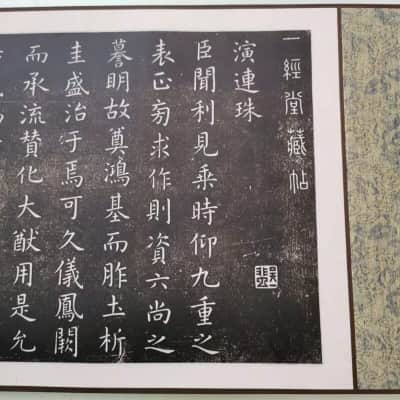 一經堂藏帖
演連珠
臣聞利見乘時仰九重之
表正旁求作則資六尚之
謩明故奠鴻基而胙土析
圭盛治于焉可久儀鳳闕
而承流贊化大猷用是允